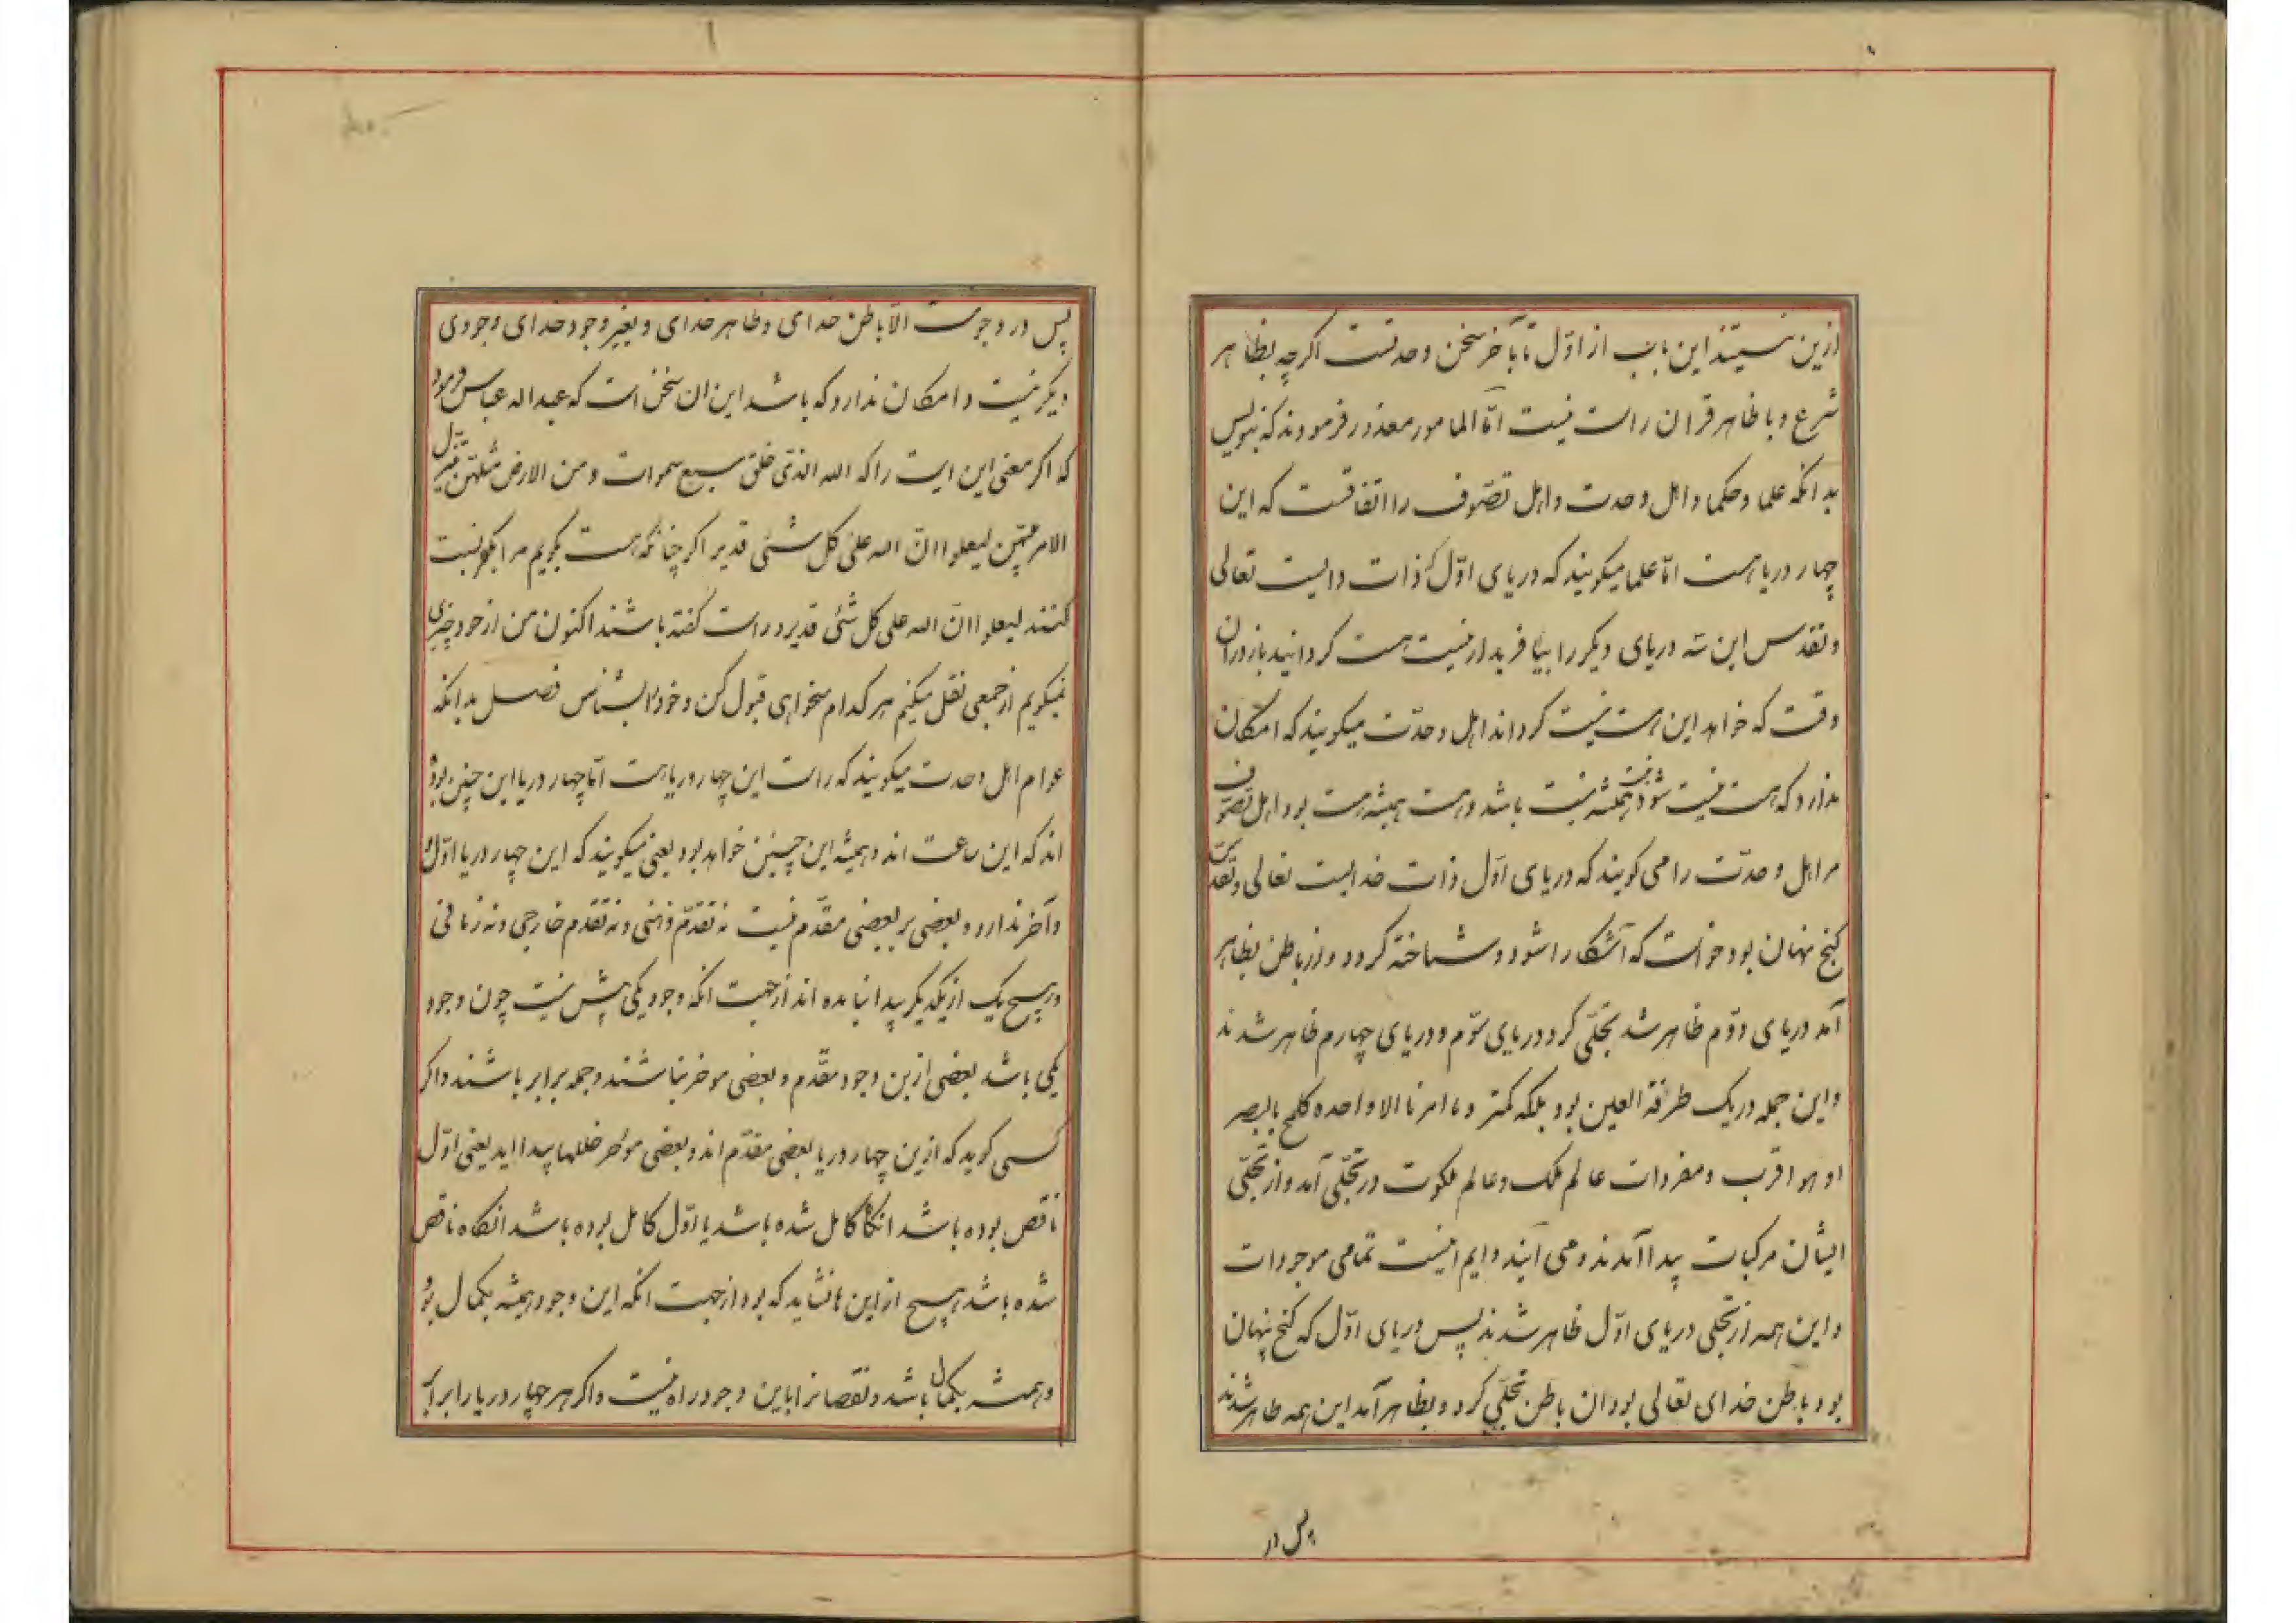 ازین نیستند این باب از اوّل تا بآخر سخن وحدتست اگرچه بظاهر
شرع و با ظاهر قران راست نیست امّا المامور معذور فرمودند که بنویس
بدانکه علما و حکما و اهل وحدت و اهل تصّوف را اتفاقست که این
چهار دریا هست امّا علما میکویند که دریای اوّل که ذات
تعالی
و تقدس این سه دریای دیکر را بیافرید از نیست هست کردانید باز دران
وقت که خواهد این هست نیست کرداند اهل وحدّت میکویند که امکان
ندارد که هست نیست شود نیست همیشه نیست باشد و هست همیشه هست بود اهل تصّوف
مر اهل وحدّت را می کویند که دریای اوّل ذات خدایست تعالی و تقدس
کنج نهان بود خواست که آشکارا شود و شناخته کردد و از باطن بظاهر
آمد دریای دوّم ظاهر شد تجلّی کرد دریای سوّم و دریای چهارم ظاهر شدند
و این جمله در یک طرفة العین بود بلکه کمتر و ما امرنا الا واحده کلمح بالبصر
او هو اقرب و مفردات عالم ملک و عالم ملکوت در تجلّی آمد و از تجلّی
ایشان مرکبات پیدا آمدند و می آیند و ایم اینست تمامی موجودات
و این همه از تجلی دریای اوّل ظاهر شدند پس دریای اوّل که کنج پنهان
بود باطن خدای تعالی بود ان باطن تجلّی کرد و بظاهر آمد این همه ظاهر شدند
پس در
پس در وجود الّا باطن خدای و ظاهر خدای و بغیر وجود خدای وجودی
دیکر نیست و امکان ندارد که باشد این ان سخن است که عبداله عباس فرمود
که اکر معنی این ایت را که الله الذی خلق سبع سموات و من الارض مثلهن یتنزل
الامر بینهن لیعلموا انّ الله علی کل شئی قدیر اکر چنانکه هست بکویم مرا بکفر نسبت
کنند لیعلموا انّ الله علی کل شئی قدیر و راست کفته باشند اکنون من از خود چیزی
نمیکویم از جمعی نقل میکنم هر کدام میخواهی قبول کن و خود را بشناس فصل بدانکه
عوام اهل وحدت میکویند که راست این چهار دریا هست امّا چهار دریا این چنین بوده
اند که این ساعت اند و همیشه این چنین خواهد بود یعنی میکویند که این چهار دریا اوّل
و آخر ندارد و بعضی بر بعضی مقدّم نیست نه تقدّم ذهنی و نه تقدم خارجی و نه زمانی
و هیچ یک از یکدیکر پیدا نیامده اند از جهت انکه وجود یکی بیش نیست چون وجود
یکی باشد بعضی ازین وجود مقدّم و بعضی موخر نباشند و جمله برابر باشند و اکر
کسی کوید که ازین چهار دریا بعضی مقدّم اند و بعضی موخر خللها پیدا اید یعنی اوّل
ناقص بوده باشد انکاه کامل شده باشد یا اوّل کامل بوده باشد انکاه ناقص
شده باشد هیچ از این ها نشاید که بود از جهت انکه این وجود همیشه بکمال بود
و همیشه بکمال باشد و نقصانرا باین وجود راه نیست و اکر هر چهار دریا را برابر